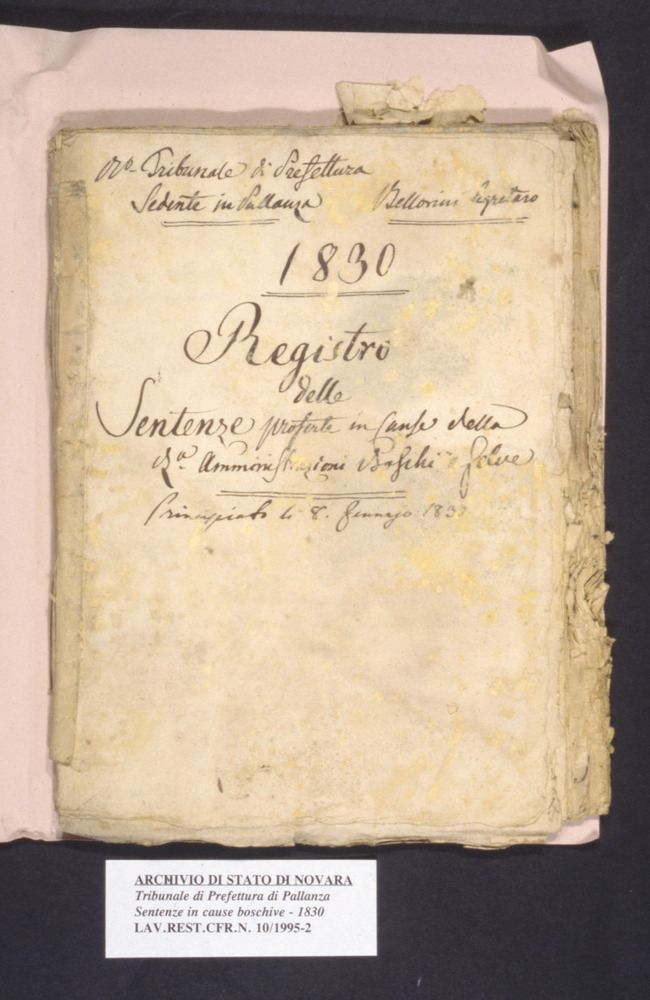 R.o Tribunale di Prefettura
Sedente in Pallanza Bellorini Segretaro
1830
Registro
delle
Sentenze proferte in Cause della
R.a Amministrazioni Boschi e Selve
Principiato li 8. Gennajo 1830
ARCHIVIO DI STATO DI NOVARA
Tribunale di Prefettura di Pallanza
Sentenze in cause boschive - 1830
LAV.REST.CFR.N. 10/1995-2